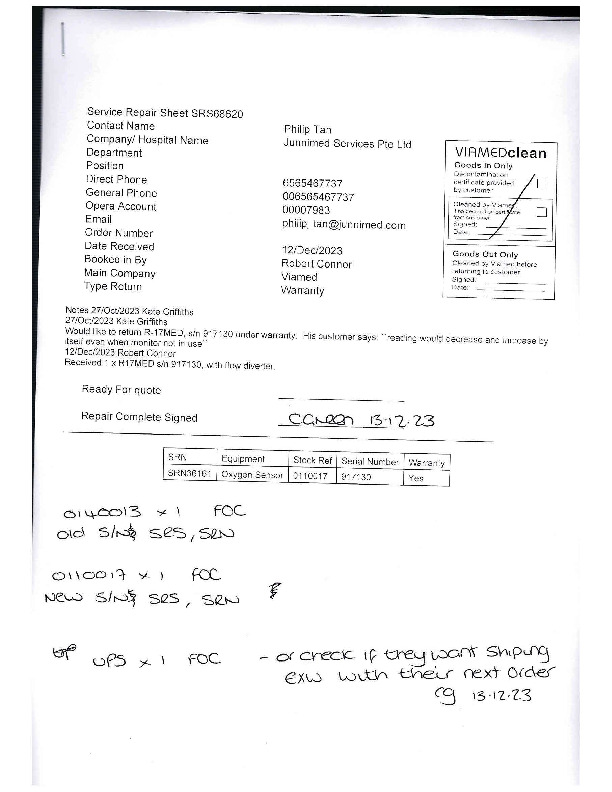 Service Repair Sheet SRS68620
Contact Name Philip Tan
Company/ Hospital Name Junnimed Services Pte Ltd
Department
Position
Direct Phone 6565467737
General Phone 006565467737
Opera Account 00007983
Email philip_tan@junnimed.com
Order Number
Date Received 12/Dec/2023
Booked in By Robert Connor
Main Company Viamed
Type Return Warranty
VIAMEDclean
Goods In Only
Decontamination
certificate provided
by customer
Cleaned by Viamed
Signed:
Date:
Goods Out Only
Cleaned by Viamed before
returning to customer
Signed:
Date:
Notes 27/Oct/2023 Kate Griffiths
27/Oct/2023 Kate Griffiths
Would like to return R-17MED, s/n 917130 under warranty. His customer says: ``reading would decrease and increase by
itself even when monitor not in use``
12/Dec/2023 Robert Connor
Received 1 x R17MED s/n 917130, with flow diverter.
Ready For quote
Repair Complete Signed CGreen 13-12-23
SRN Equipment Stock Ref Serial Number Warranty
SRN36161 Oxygen Sensor 0110017 917130 Yes
0140013 x 1 FOC
old S/N SRS, SRN
0110017 x 1 FOC
New S/N SRS, SRN
UPS x 1 FOC - or check if they want shiping
EXW with their next order
CG 13-12-23